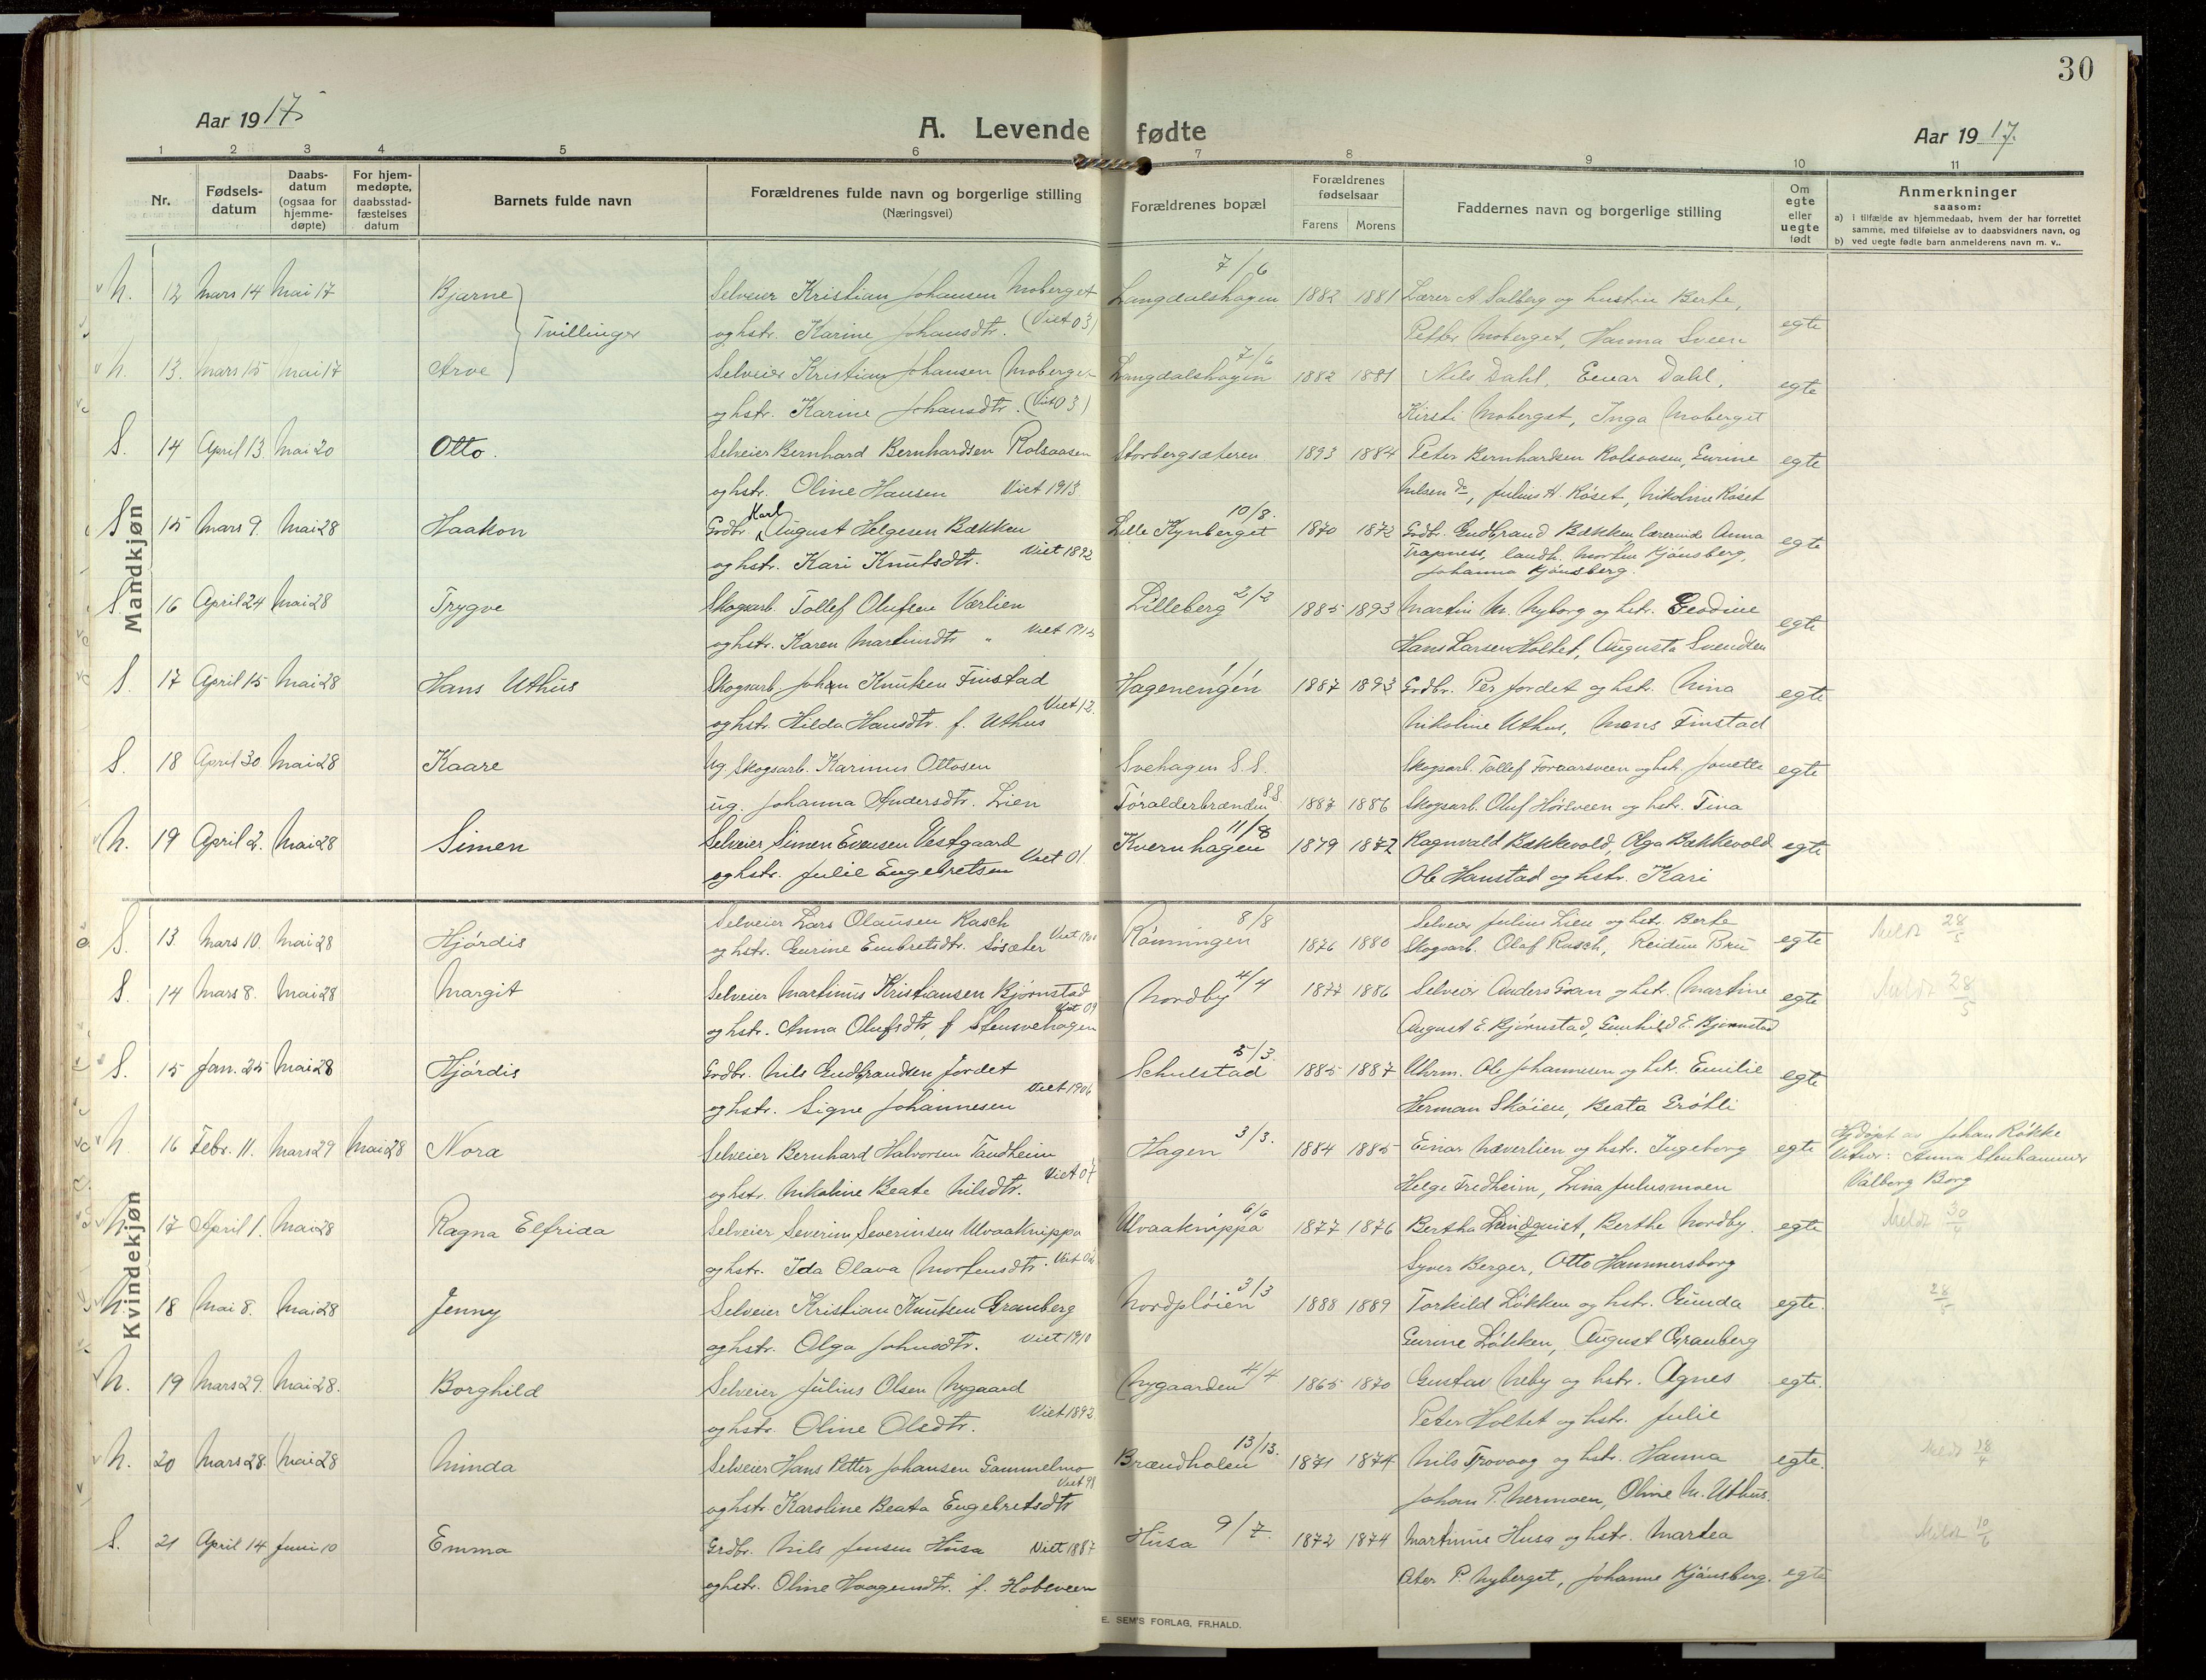 30
Aar 1917.
A. Levende fødte
Aar 1917.
1 2 3 4 5 6 7 8 9 10 11
Nr.
Fødsels-
datum
Daabs-
datum
(ogsaa for
hjemme-
døpte)
For hjem-
medøpte,
daabsstad-
fæstelses
datum
Barnets fulde navn
Forældrenes fulde navn og borgerlige stilling
(Næringsvei)
Forældrenes bopæl
Forældrenes
fødselsaar
Farens Morens
Faddernes navn og borgerlige stilling
Om
egte
eller
uegte
født
Anmerkninger
saasom:
a) i tilfælde av hjemmedaab, hvem der har forrettet
samme, med tilføielse av to daabsvidners navn, og
b) ved uegte fødte barn anmelderens navn m. v..
Mandkjøn
7/6
N. 12 Mars 14 Mai 17 Bjarne Selveier Kristian Johansen Moberget Langdalshagen 1882 1881 Lærer A. Solberg og hustru Berte,
Tvillinger og hstr. Karine Johansdtr. (Viet 03) Petter Moberget, Hanna Sveen egte
7/6
N. 13. Mars 15 Mai 17 Arve Selveier Kristian Johansen Moberget Langdalshagen 1882 1881 Nils Dahl, Einar Dahl, egte
og hstr. Karine Johansdtr. (Viet 03) Kirsti Moberget, Inga Moberget
S. 14 April 13. Mai 20 Otto. Selveier Bernhard Bernhardsen Rolsaasen Storbergsæteren 1893 1884 Peter Bernhardsen Rolsaasen, Eurine egte
og hstr. Oline Hansen Viet 1913 Nilsen do, Julius H. Røset, Nikoline Røset
10/8.
S 15 Mars 9. Mai 28 Haakon Grdbr. Karl August Helgesen Bækken Lille Kynberget 1870 1872 Grdbr. Gudbrand Bækken, lærerinde Anna egte
og hstr. Kari Knutsdtr. Viet 1892 Trapness, landh. Morten Kjønsberg,
Johanna Kjønsberg.
S. 16 April 24 Mai 28 Trygve Skogsarb. Tollef Olufsen Værlien Lilleberg 2/2 1885 1893 Martin M. Nyborg og hstr. Geodine egte
og hstr. Karen Martinsdtr " Hans Larsen Holtet, Augusta Svendsen
S. 17 April 15 Mai 28 Hans Uthus Skogsarb. Johan Knutsen Finstad Hagenengen 1/1 1887 1893 Grdbr. Per Jordet og hstr. Nina egte
og hstr. Hilda Hansdtr. f. Uthus Viet 12. Nikoline Uthus, Mons Finstad
S. 18 April 30. Mai 28 Kaare Ug. Skogsarb. Karinus Ottosen Svehagen S.S. Skogsarb. Tollef Foraarsveen og hstr. Jonette egte
ug. Johanna Andersdtr. Lien Tøralderbrænden S.S. 1887 1886 Skogsarb. Oluf Hørsveen og hstr. Tina
11/8
N. 19 April 2. Mai 28 Simen Selveier Simen Evensen Vestgaard Kvernhagen 1879 1872 Ragnvald Bækkevold, Olga Bækkevold egte
og hstr. Julie Engebretsen Viet 01. Ole Hanstad og hstr. Kari
Kvindekjøn
S. 13 Mars 10. Mai 28 Hjørdis Selveier Lars Olausen Rasch Rønningen 8/8 1876 1880 Selveier Julius Lien og hstr. Berte egte Meldt 28/5
og hstr. Gurine Embretsdtr. Søsæter Skogsarb. Olaf Rasch, Reidun Bru
S. 14 Mars 8. Mai 28 Margit Selveier Martinus Kristiansen Bjørnstad Nordby 4/4 1877 1886 Selveier Anders Gran og hstr. Martine egte Meldt 28/5
og hstr. Anna Olufsdtr, f Stensvehagen Viet 09 August E. Bjørnstad, Gunhild E. Bjørnstad
S. 15 Jan. 25 Mai 28 Hjørdis Grdbr. Nils Gudbrandsen Jordet Schulstad 5/3. 1885 1887 Uhrm. Ole Johannesen og hstr. Emilie egte
og hstr. Signe Johannesen Viet 1906 Herman Skøien, Beata Grøtli
N. 16 Febr. 11. Mars 29 Mai 28 Nora Selveier Bernhard Halvorsen Tandheim Hagen 3/3. 1884 1885 Einar Næverlien og hstr. Ingeborg egte Hjdøpt av Johan Røkke
og hstr. Nikoline Beate Nilsdtr. Viet 07 Helge Fredheim, Lina Julusmoen Vitner: Anna Stenhammer
Valborg Borg
N. 17 April 1. Mai 28 Ragna Elfrida Selveier Severin Severinsen Ulvaaknippa Ulvaaknippa 6/6 1877 1876 Bertha Lundquist, Berthe Nordby. egte Meldt 30/4
og hstr. Ida Olava Mortensdtr. Syver Berger, Otto Hammersborg
N. 18 Mai 8. Mai 28 Jenny Selveier Kristian Knutsen Granberg Nordpløien 3/3 1888 1889 Torkild Løkken og hstr. Gunda egte. 28/5
og hstr. Olga Johnsdtr. Viet 1910 Gurine Løkken, August Granberg
N. 19 Mars 29. Mai 28. Borghild Selveier Julius Olsen Nygaard Nygaarden 4/4 1865 1870 Gustav Neby og hstr. Agnes egte.
og hstr. Oline Olsdtr. Viet 1892 Peter Holtet og hstr. Julie
N. 20 Mars 28. Mai 28 Minda Selveier Hans Petter Johansen Gammelmo Brændholen 13/13. 1871 1874 Nils Trovaag og hstr. Hanna egte. Meldt 28/4
og hstr. Karoline Beata Engebretsdtr Viet 98 Johan P. Nermoen, Oline M. Uthus.
S. 21 April 14 Juni 10 Emma Grdbr. Nils Jensen Husa Viet 1887 Husa 9/7. 1872 1874 Martinus Husa og hstr. Martea Meldt 10/6
og hstr. Oline Haagensdtr. f. Hobsveen Peter P. Nyberget, Johanne Kjønsberg. egte
E. SEM'S FORLAG, FR.HALD.